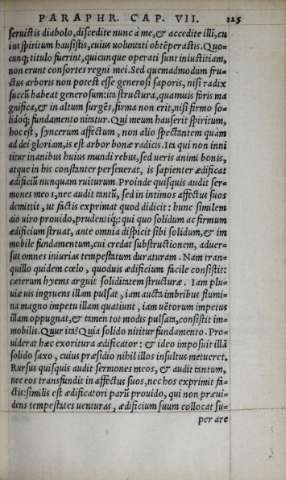 PARAPHR. CAP. VII. 225
seruistis diabolo, discedite nunc à me, & accedite illi, cu
ius spiritum hausistis, cuius uoluntati obtēperastis. Quo-
cunq; titulo fuerint, quicunque operati sunt iniustitiam,
non erunt consortes regni mei. Sed quemadmodum fru-
ctus arboris non potest esse generosi saporis, nisi radix
succū habeat generosum: ita structura, quamuis foris ma
gnifica, & in altum surgēs, firma non erit, nisi firmo so-
lidoq; fundamento nixa. Qui meum hauserit spiritum,
hoc est, syncerum affectum, non alio spectantem quàm
ad dei gloriam, is est arbor bona radicis. Ita qui non inni
titur inanibus huius mundi rebus, sed ueris animi bonis,
atque in his constanter perseuerat, is sapienter ædificat
ædificiū nunquam ruiturum. Proinde quisquis audit ser-
mones meos, nec audit tantū, sed in intimos affectus suos
demittit, ut factis exprimat quod didicit: hunc similem
aio uiro prouido, prudentiq;: qui quo solidum ac firmum
ædificium struat, ante omnia dispicit sibi solidum, & im
mobile fundamentum, cui credat substructionem, aduer-
sus omnes iniurias tempestatum duraturam. Nam tran-
quillo quidem cœlo, quoduis ædificium facile consistit:
cæterum hyems arguit soliditatem structuræ. Iam plu-
uiæ uis ingruens illam pulsat, iam aucta imbribus flumi-
na magno impetu illam quatiunt, iam uētorum impetus
illam oppugnat, & tamen tot modis pulsata, consistit im-
mobilis. Quur ita? Quia solido nititur fundamento. Pro-
uiderat hæc exoritura ædificator: & ideo imposuit illā
solido saxo, cuius præsidio nihil illos insultus metueret.
Rursus quisquis audit sermones meos, & audit tantum,
nec eos transfundit in affectus suos, nec hos exprimit fa-
ctis: similis est ædificatori parū prouido, qui non præui-
dens tempestates uenturas, ædificium suum collocat su-
per are